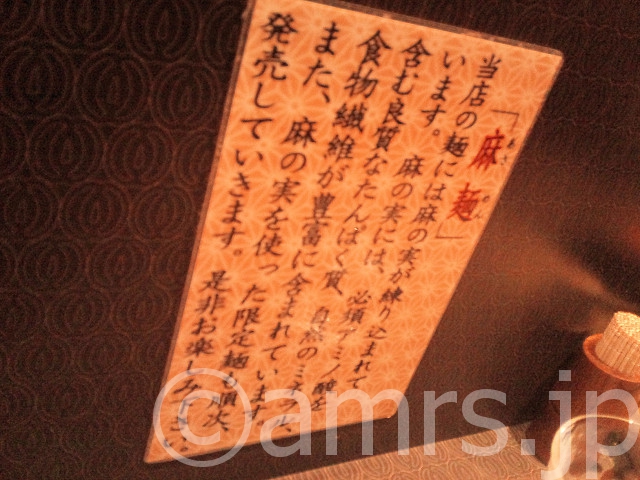 「麻麺」
あさ めん
当店の麺には麻の実が練り込まれて
います。麻の実には、必須アミノ酸を
含む良質なたんぱく質、自然のミネラル、
食物繊維が豊富に含まれています。
また、麻の実を使った限定麺も順次、
発売していきます。是非お楽しみ下さい。
©amrs.jp